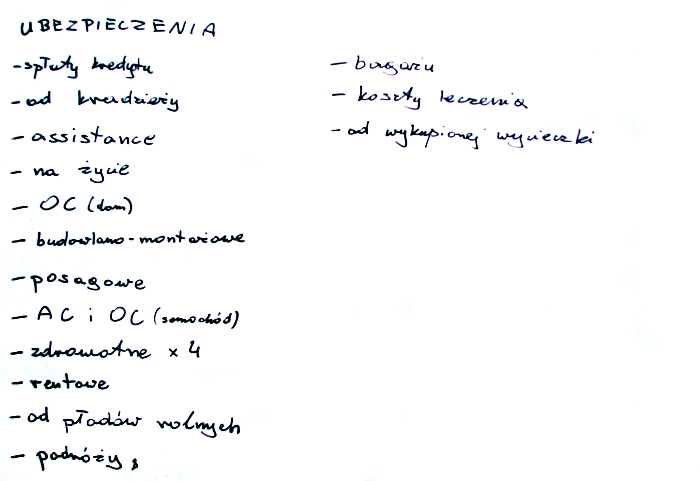 UBEZPIECZENIA
- spłaty kredytu
- od kradzieży
- assistance
- na życie
- OC (dom)
- budowlano-montażowe
- posagowe
- AC i OC (samochód)
- zdrowotne x 4
- rentowe
- od płodów rolnych
- podróży,
- bagażu
- koszty leczenia
- od wykupionej wycieczki